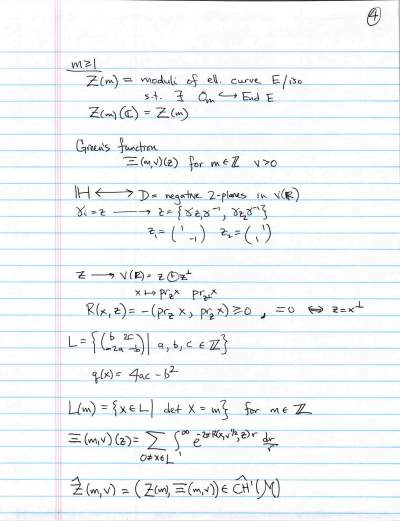 4
m≥1
Z(m) = moduli of ell. curve E/iso
s.t. ∃ O_m ↪ End E
Z(m)(ℂ) = Z(m)
Green's function
Ξ(m,v)(z) for m∈ℤ v>0
ℍ ⟷ D = negative 2-planes in V(ℝ)
γi=z ⟶ z={γz₁γ⁻¹, γz₂γ⁻¹}
z₁=(¹ ₋₁) z₂=(₁ ¹)
z ⟶ V(ℝ)=z⊕z^⊥
x↦pr_z x pr_{z^⊥} x
R(x,z)=-(pr_z x, pr_z x)≥0, =0 ⇔ z=x^⊥
L={(b 2c -2a -b)| a,b,c∈ℤ}
q(x)= 4ac-b²
L(m)={x∈L| det x=m} for m∈ℤ
Ξ(m,v)(z)= ∑_{0≠x∈L} ∫₁^∞ e^{-2πR(x,v^{1/2},z)r} dr/r
Ẑ(m,v)=(Z(m),Ξ(m,v))∈ĈH¹(M)